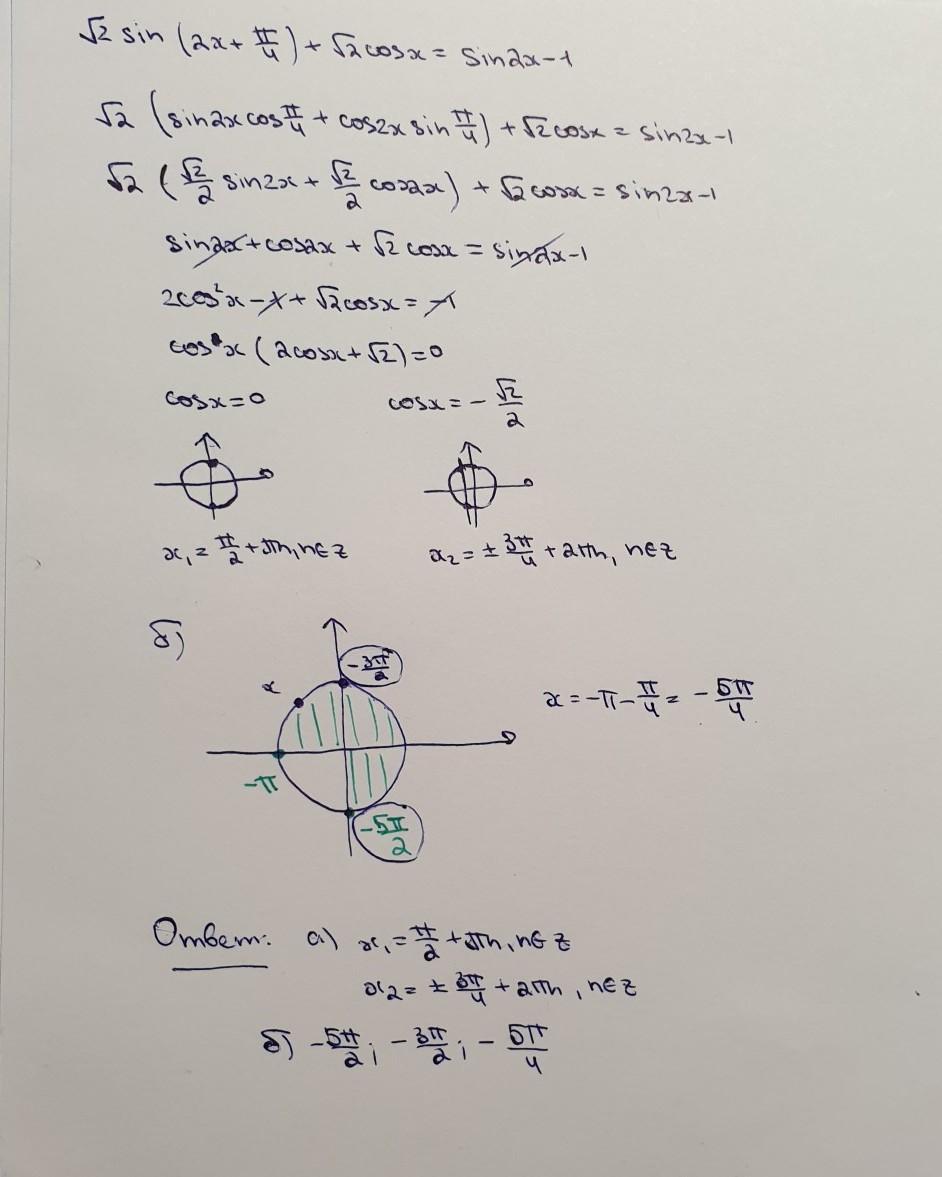 √2 sin (2x + π/4) + √2 cosx = sin2x-1
√2 (sin2x cos π/4 + cos2x sin π/4) + √2 cosx = sin2x-1
√2 (√2/2 sin2x + √2/2 cos2x) + √2 cosx = sin2x-1
sin2x + cos2x + √2 cosx = sin2x-1
2cos²x - 1 + √2 cosx = -1
cos x (2cosx + √2) = 0
cosx = 0 cosx = - √2/2
x₁ = π/2 + πn, n∈Z x₂ = ± 3π/4 + 2πn, n∈Z
б)
-3π/2
x
x = -π - π/4 = - 5π/4
-π
-5π/2
Ответ: а) x₁ = π/2 + πn, n∈Z
x₂ = ± 3π/4 + 2πn, n∈Z
б) -5π/2; -3π/2; - 5π/4